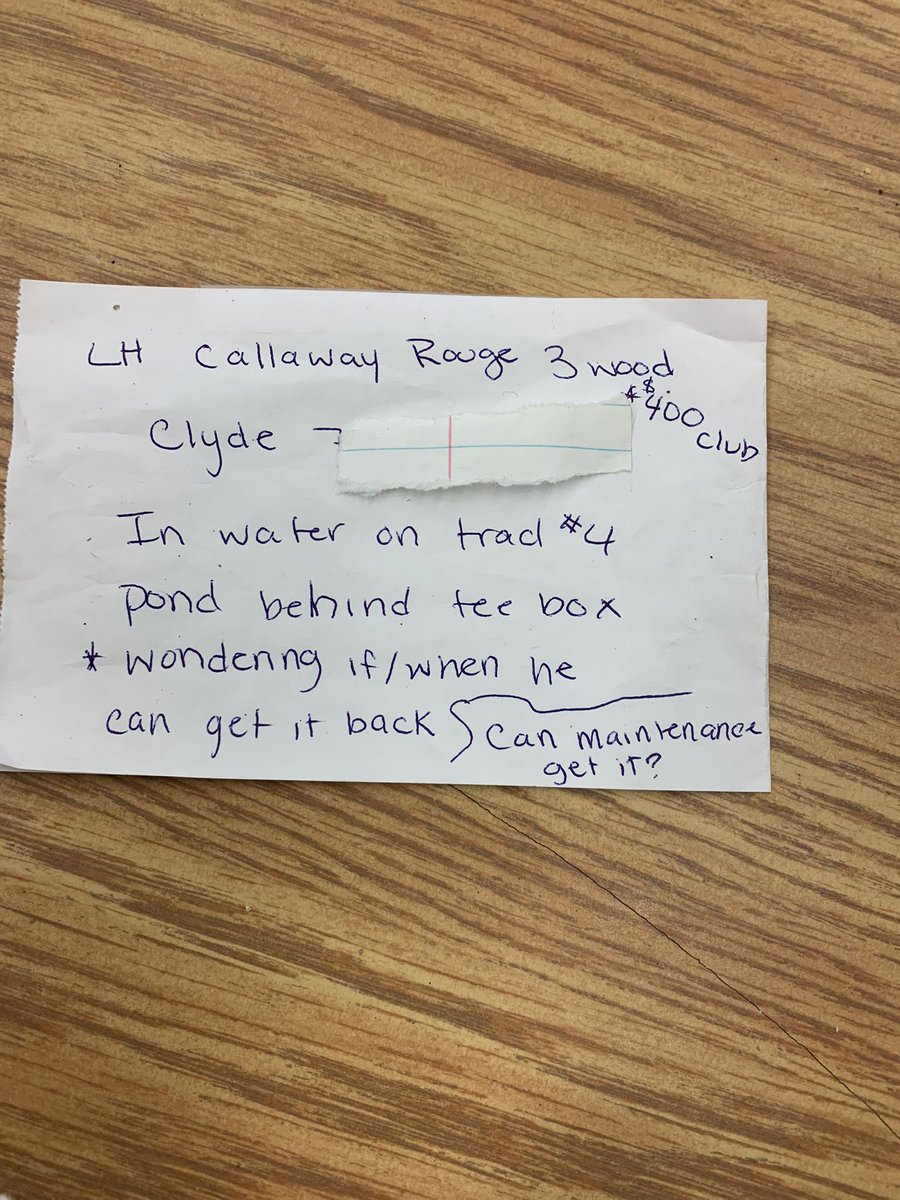 LH Callaway Rouge 3 wood
* $400 club
Clyde -
In water on trad #4
pond behind tee box
* wondering if/when he
can get it back
Can maintenance
get it?